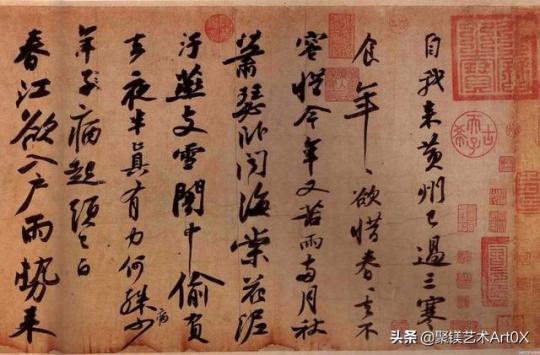 自我来黄州已過三寒
食年〻欲惜春〻去不
容惜今年又苦雨兩月秋
蕭瑟卧聞海棠花泥
汙燕支雪闇中偷負
去夜半真有力何殊少
病
年子病起須已白
春江欲入户雨勢来
古希天子
头条 @聚镁艺术Art0X